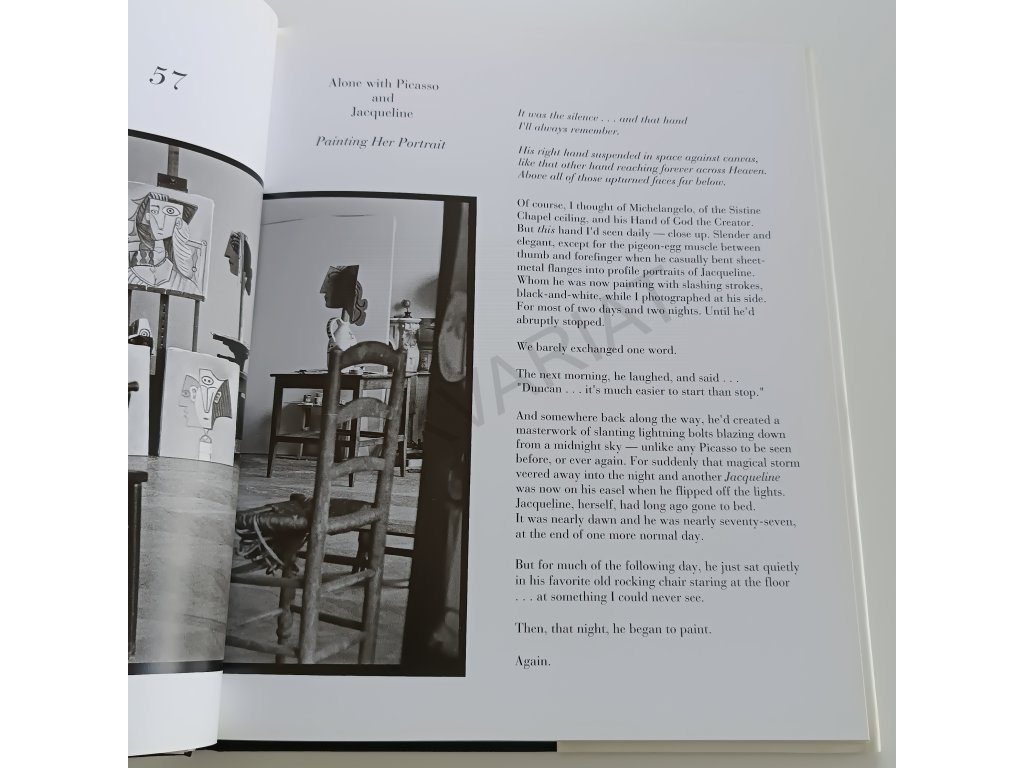 57
Alone with Picasso
and
Jacqueline
Painting Her Portrait
It was the silence . . . and that hand
I'll always remember.
His right hand suspended in space against canvas,
like that other hand reaching forever across Heaven.
Above all of those upturned faces far below.
Of course, I thought of Michelangelo, of the Sistine
Chapel ceiling, and his Hand of God the Creator.
But this hand I'd seen daily — close up. Slender and
elegant, except for the pigeon-egg muscle between
thumb and forefinger when he casually bent sheet-
metal flanges into profile portraits of Jacqueline.
Whom he was now painting with slashing strokes,
black-and-white, while I photographed at his side.
For most of two days and two nights. Until he'd
abruptly stopped.
We barely exchanged one word.
The next morning, he laughed, and said . . .
"Duncan . . . it's much easier to start than stop."
And somewhere back along the way, he'd created a
masterwork of slanting lightning bolts blazing down
from a midnight sky — unlike any Picasso to be seen
before, or ever again. For suddenly that magical storm
veered away into the night and another Jacqueline
was now on his easel when he flipped off the lights.
Jacqueline, herself, had long ago gone to bed.
It was nearly dawn and he was nearly seventy-seven,
at the end of one more normal day.
But for much of the following day, he just sat quietly
in his favorite old rocking chair staring at the floor
. . . at something I could never see.
Then, that night, he began to paint.
Again.